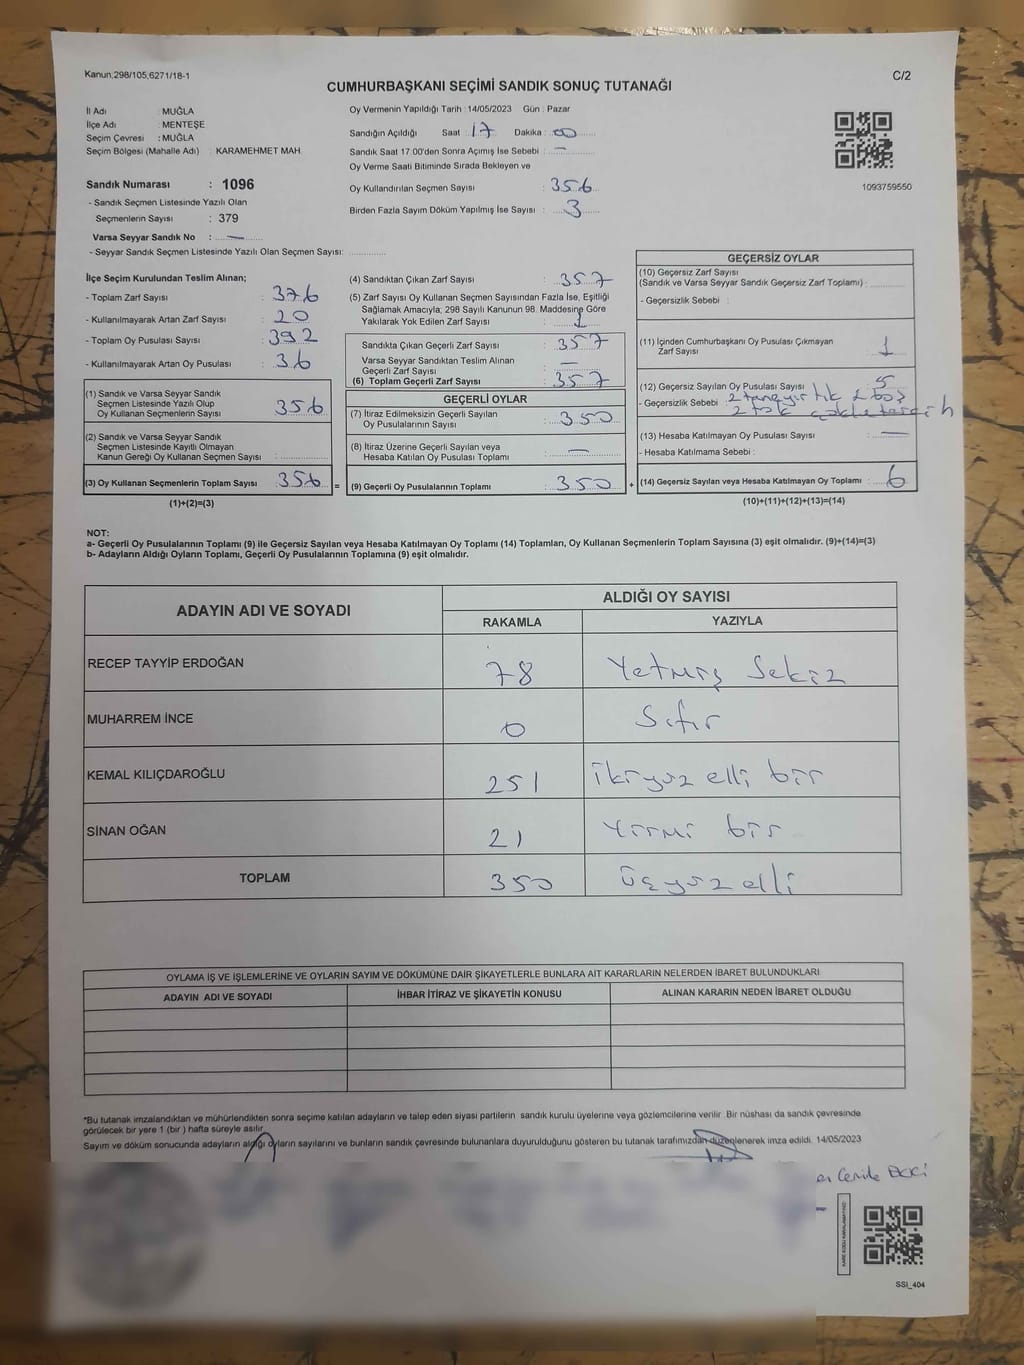 Kanun;298/105,6271/18-1
C/2
CUMHURBAŞKANI SEÇİMİ SANDIK SONUÇ TUTANAĞI
İl Adı : MUĞLA
İlçe Adı : MENTEŞE
Seçim Çevresi : MUĞLA
Seçim Bölgesi (Mahalle Adı) : KARAMEHMET MAH.
Sandık Numarası : 1096
- Sandık Seçmen Listesinde Yazılı Olan
Seçmenlerin Sayısı : 379
Varsa Seyyar Sandık No : —
- Seyyar Sandık Seçmen Listesinde Yazılı Olan Seçmen Sayısı:
Oy Vermenin Yapıldığı Tarih : 14/05/2023 Gün : Pazar
Sandığın Açıldığı Saat : 17 Dakika : 00
Sandık Saat 17.00'den Sonra Açımış İse Sebebi : —
Oy Verme Saati Bitiminde Sırada Bekleyen ve
Oy Kullandırılan Seçmen Sayısı : 356
Birden Fazla Sayım Döküm Yapılmış İse Sayısı : 3
1093759550
İlçe Seçim Kurulundan Teslim Alınan;
- Toplam Zarf Sayısı : 376
- Kullanılmayarak Artan Zarf Sayısı : 20
- Toplam Oy Pusulası Sayısı : 392
- Kullanılmayarak Artan Oy Pusulası : 36
(1) Sandık ve Varsa Seyyar Sandık
Seçmen Listesinde Yazılı Olup
Oy Kullanan Seçmenlerin Sayısı : 356
(2) Sandık ve Varsa Seyyar Sandık
Seçmen Listesinde Kayıtlı Olmayan
Kanun Gereği Oy Kullanan Seçmen Sayısı :
(3) Oy Kullanan Seçmenlerin Toplam Sayısı : 356 =
(1)+(2)=(3)
(4) Sandıktan Çıkan Zarf Sayısı : 357
(5) Zarf Sayısı Oy Kullanan Seçmen Sayısından Fazla İse, Eşitliği
Sağlamak Amacıyla; 298 Sayılı Kanunun 98. Maddesine Göre
Yakılarak Yok Edilen Zarf Sayısı : 1
Sandıkta Çıkan Geçerli Zarf Sayısı : 357
Varsa Seyyar Sandıktan Teslim Alınan
Geçerli Zarf Sayısı : —
(6) Toplam Geçerli Zarf Sayısı : 357
GEÇERLİ OYLAR
(7) İtiraz Edilmeksizin Geçerli Sayılan
Oy Pusulalarının Sayısı : 350
(8) İtiraz Üzerine Geçerli Sayılan veya
Hesaba Katılan Oy Pusulası Toplamı : —
(9) Geçerli Oy Pusulalarının Toplamı : 350 +
GEÇERSİZ OYLAR
(10) Geçersiz Zarf Sayısı
(Sandık ve Varsa Seyyar Sandık Geçersiz Zarf Toplamı) :
- Geçersizlik Sebebi :
(11) İçinden Cumhurbaşkanı Oy Pusulası Çıkmayan
Zarf Sayısı : 1
(12) Geçersiz Sayılan Oy Pusulası Sayısı : 5
- Geçersizlik Sebebi :
(13) Hesaba Katılmayan Oy Pusulası Sayısı : —
- Hesaba Katılmama Sebebi :
(14) Geçersiz Sayılan veya Hesaba Katılmayan Oy Toplamı : 6
(10)+(11)+(12)+(13)=(14)
NOT:
a- Geçerli Oy Pusulalarının Toplamı (9) ile Geçersiz Sayılan veya Hesaba Katılmayan Oy Toplamı (14) Toplamları, Oy Kullanan Seçmenlerin Toplam Sayısına (3) eşit olmalıdır. (9)+(14)=(3)
b- Adayların Aldığı Oyların Toplamı, Geçerli Oy Pusulalarının Toplamına (9) eşit olmalıdır.
ADAYIN ADI VE SOYADI
ALDIĞI OY SAYISI
RAKAMLA YAZIYLA
RECEP TAYYİP ERDOĞAN 78 Yetmiş Sekiz
MUHARREM İNCE 0 Sıfır
KEMAL KILIÇDAROĞLU 251 ikiyüz elli bir
SİNAN OĞAN 21 Yirmi bir
TOPLAM 350 üçyüz elli
OYLAMA İŞ VE İŞLEMLERİNE VE OYLARIN SAYIM VE DÖKÜMÜNE DAİR ŞİKAYETLERLE BUNLARA AİT KARARLARIN NELERDEN İBARET BULUNDUKLARI
ADAYIN ADI VE SOYADI İHBAR İTİRAZ VE ŞİKAYETİN KONUSU ALINAN KARARIN NEDEN İBARET OLDUĞU
*Bu tutanak imzalandıktan ve mühürlendikten sonra seçime katılan adayların ve talep eden siyasi partilerin sandık kurulu üyelerine veya gözlemcilerine verilir. Bir nüshası da sandık çevresinde
görülecek bir yere 1 (bir) hafta süreyle asılır.
Sayım ve döküm sonucunda adayların aldığı oyların sayılarını ve bunların sandık çevresinde bulunanlara duyurulduğunu gösteren bu tutanak tarafımızdan düzenlenerek imza edildi. 14/05/2023
SSI_404